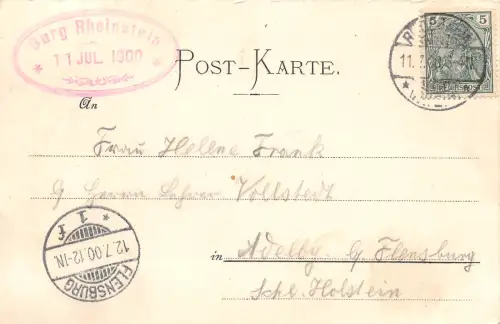 Burg Rheinstein
* 11 JUL. 1900 *
5
11. 7.
POST-KARTE.
An
Frau Helene Frank
Herrn Lehrer Vollstedt
in Adelby b/ Flensburg
Schl. Holstein
* 1 f
12.7.00.12-1N.
FLENSBURG